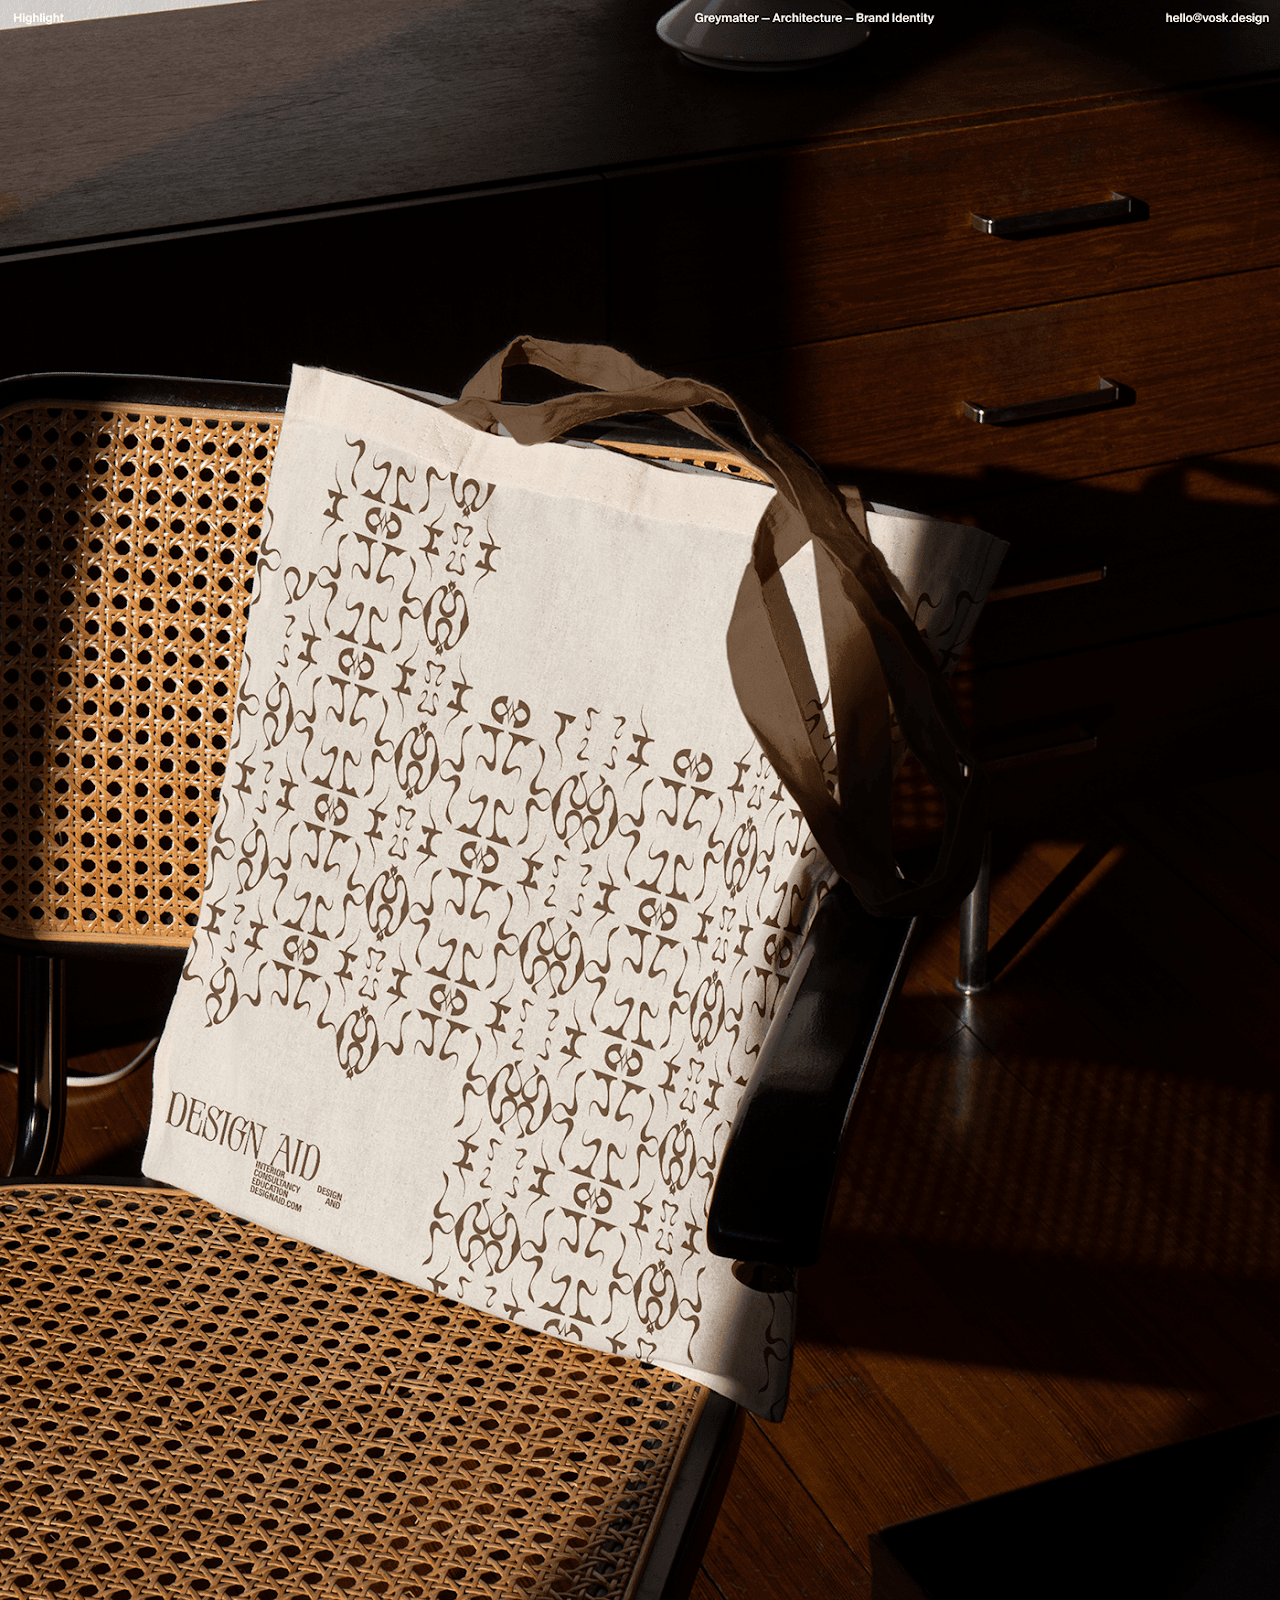 Highlight
Greymatter — Architecture — Brand Identity
hello@vosk.design
DESIGN AID
INTERIOR
CONSULTANCY
EDUCATION
DESIGNAID.COM
DESIGN
AND